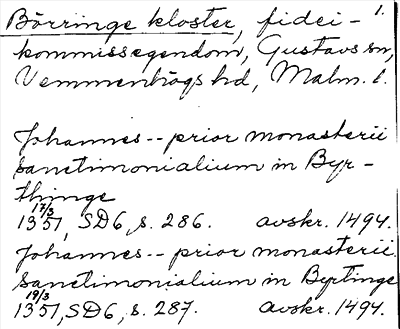 Börringe kloster, fidei- 1.
kommissegendom, Gustavs sn,
Vemmenhögs hd, Malm. l.
Johannes -- prior monasterii
sanctimonialium in Byr-
thinge
17/3 1351, SD6, s. 286. avskr. 1494.
Johannes -- prior monasterii
sanctimonialium in Byrtinge
19/3 1351, SD6, s. 287. avskr. 1494.